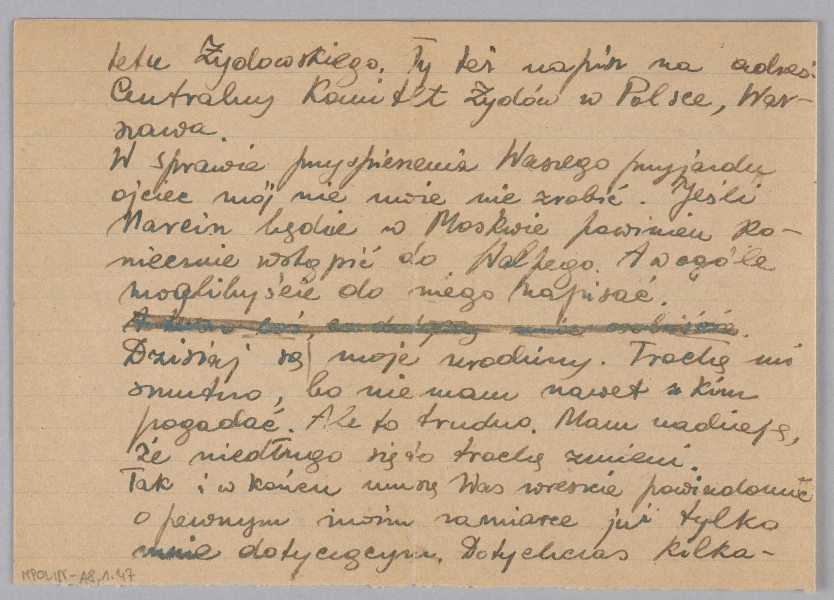 tetu Żydowskiego. Ty też napisz na adres:
Centralny Komitet Żydów w Polsce, War-
szawa.
W sprawie przyspieszenia Waszego przyjazdu
ojciec mój nie może nic zrobić. Jeśli
Marcin będzie w Moskwie powinien ko-
niecznie wstąpić do Wolpego. A w ogóle
moglibyście do niego napisać.
Dzisiaj są moje urodziny. Trochę mi
smutno, bo nie mam nawet z kim
pogadać. Ale to trudno. Mam nadzieję,
że niedługo się to trochę zmieni.
Tak i w końcu muszę Was wreszcie powiadomić
o pewnym moim zamiarze już tylko
mnie dotyczącym. Dotychczas kilka-
MPOLIN-A8.1.47